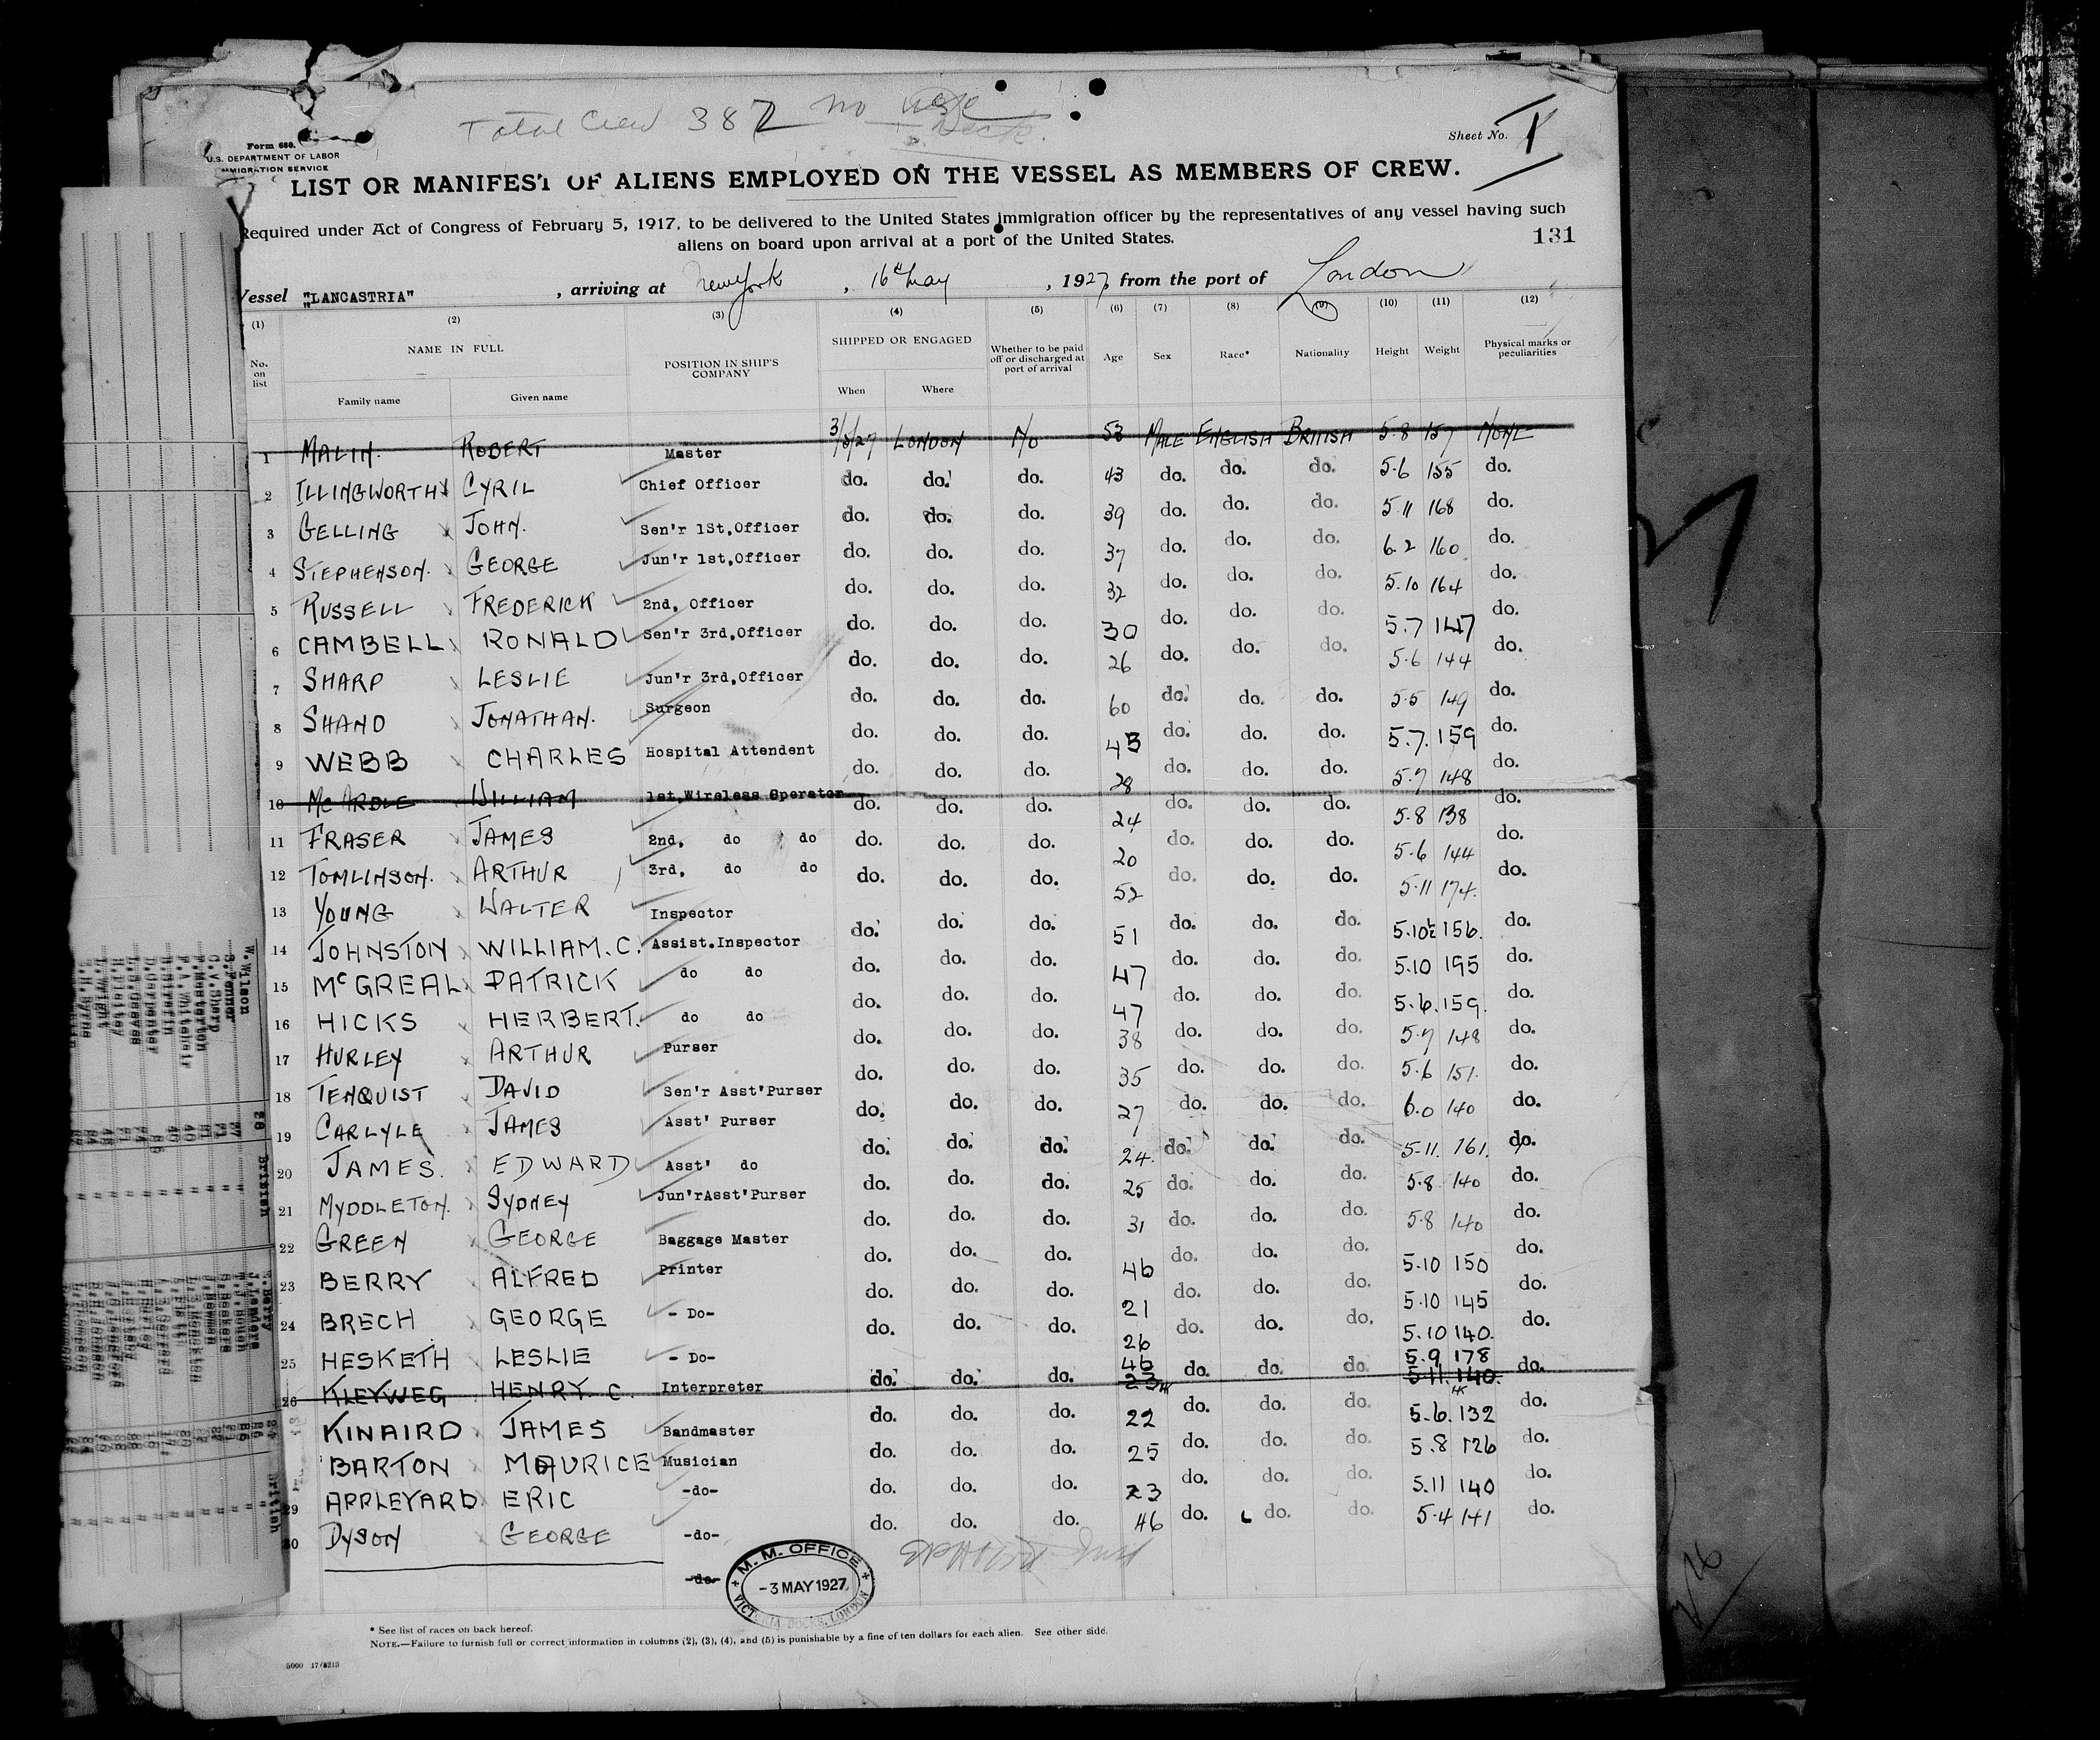 Total Crew 387 no
Sheet No. 1
Form 680.
U.S. DEPARTMENT OF LABOR
IMMIGRATION SERVICE
LIST OR MANIFEST OF ALIENS EMPLOYED ON THE VESSEL AS MEMBERS OF CREW.
Required under Act of Congress of February 5, 1917, to be delivered to the United States immigration officer by the representatives of any vessel having such
aliens on board upon arrival at a port of the United States.
131
Vessel "LANCASTRIA", arriving at New York, 16th May, 1927, from the port of London
(1) (2) (3) (4) (5) (6) (7) (8) (9) (10) (11) (12)
No. on list NAME IN FULL POSITION IN SHIP'S COMPANY SHIPPED OR ENGAGED Whether to be paid off or discharged at port of arrival Age Sex Race* Nationality Height Weight Physical marks or peculiarities
Family name Given name When Where
1 MALIN. ROBERT Master 3/5/27 LONDON No 53 MALE ENGLISH BRITISH 5.8 157 NONE
2 ILLINGWORTH CYRIL Chief Officer do. do. do. 43 do. do. do. 5.6 155 do.
3 GELLING JOHN. Sen'r 1St.Officer do. do. do. 39 do. do. do. 5.11 168 do.
4 STEPHENSON. GEORGE Jun'r 1st.Officer do. do. do. 37 do. do. do. 6.2 160 do.
5 RUSSELL FREDERICK 2nd. Officer do. do. do. 32 do. do. do. 5.10 164 do.
6 CAMBELL RONALD Sen'r 3rd.Officer do. do. do. 30 do. do. do. 5.7 147 do.
7 SHARP LESLIE Jun'r 3rd.Officer do. do. do. 26 do. do. do. 5.6 144 do.
8 SHAND JONATHAN. Surgeon do. do. do. 60 do. do. do. 5.5 149 do.
9 WEBB CHARLES Hospital Attendent do. do. do. 43 do. do. do. 5.7. 159 do.
10 McARDLE WILLIAM 1st.Wireless Operator do. do. do. 28 do. do. do. 5.7 148 do.
11 FRASER JAMES 2nd. do do do. do. do. 24 do. do. do. 5.8 138 do.
12 TOMLINSON. ARTHUR 3rd. do do do. do. do. 20 do. do. do. 5.6 144 do.
13 YOUNG WALTER Inspector do. do. do. 52 do. do. do. 5.11 174. do.
14 JOHNSTON WILLIAM.C. Assist.Inspector do. do. do. 51 do. do. do. 5.10½ 156. do.
15 McGREAL PATRICK do do do. do. do. 47 do. do. do. 5.10 195 do.
16 HICKS HERBERT. do do do. do. do. 47 do. do. do. 5.6. 159. do.
17 HURLEY ARTHUR Purser do. do. do. 38 do. do. do. 5.7 148 do.
18 TENQUIST DAVID Sen'r Asst'Purser do. do. do. 35 do. do. do. 5.6 151. do.
19 CARLYLE JAMES Asst' Purser do. do. do. 27 do. do. do. 6.0 140 do.
20 JAMES. EDWARD Asst' do do. do. do. 24. do. do. do. 5.11. 161. do.
21 MYDDLETON. SYDNEY Jun'rAsst'Purser do. do. do. 25 do. do. do. 5.8 140 do.
22 GREEN GEORGE Baggage Master do. do. do. 31 do. do. do. 5.8 140 do.
23 BERRY ALFRED Printer do. do. do. 46 do. do. do. 5.10 150 do.
24 BRECH GEORGE - Do- do. do. do. 21 do. do. do. 5.10 145 do.
25 HESKETH LESLIE - Do- do. do. do. 26 do. do. do. 5.10 140. do.
26 KLEYWEG HENRY C. Interpreter do. do. do. 46 23 do. do. do. 5.9 178 5.11. 140. do.
KINAIRD JAMES Bandmaster do. do. do. 22 do. do. do. 5.6. 132 do.
BARTON MAURICE Musician do. do. do. 25 do. do. do. 5.8 126 do.
29 APPLEYARD ERIC -do- do. do. do. 23 do. do. do. 5.11 140 do.
30 DYSON GEORGE -do- do. do. do. 46 do. do. do. 5.4 141 do.
-do-
M. M. OFFICE
-3 MAY 1927
VICTORIA DOCKS, LONDON
* See list of races on back hereof.
NOTE.—Failure to furnish full or correct information in columns (2), (3), (4), and (5) is punishable by a fine of ten dollars for each alien. See other side.